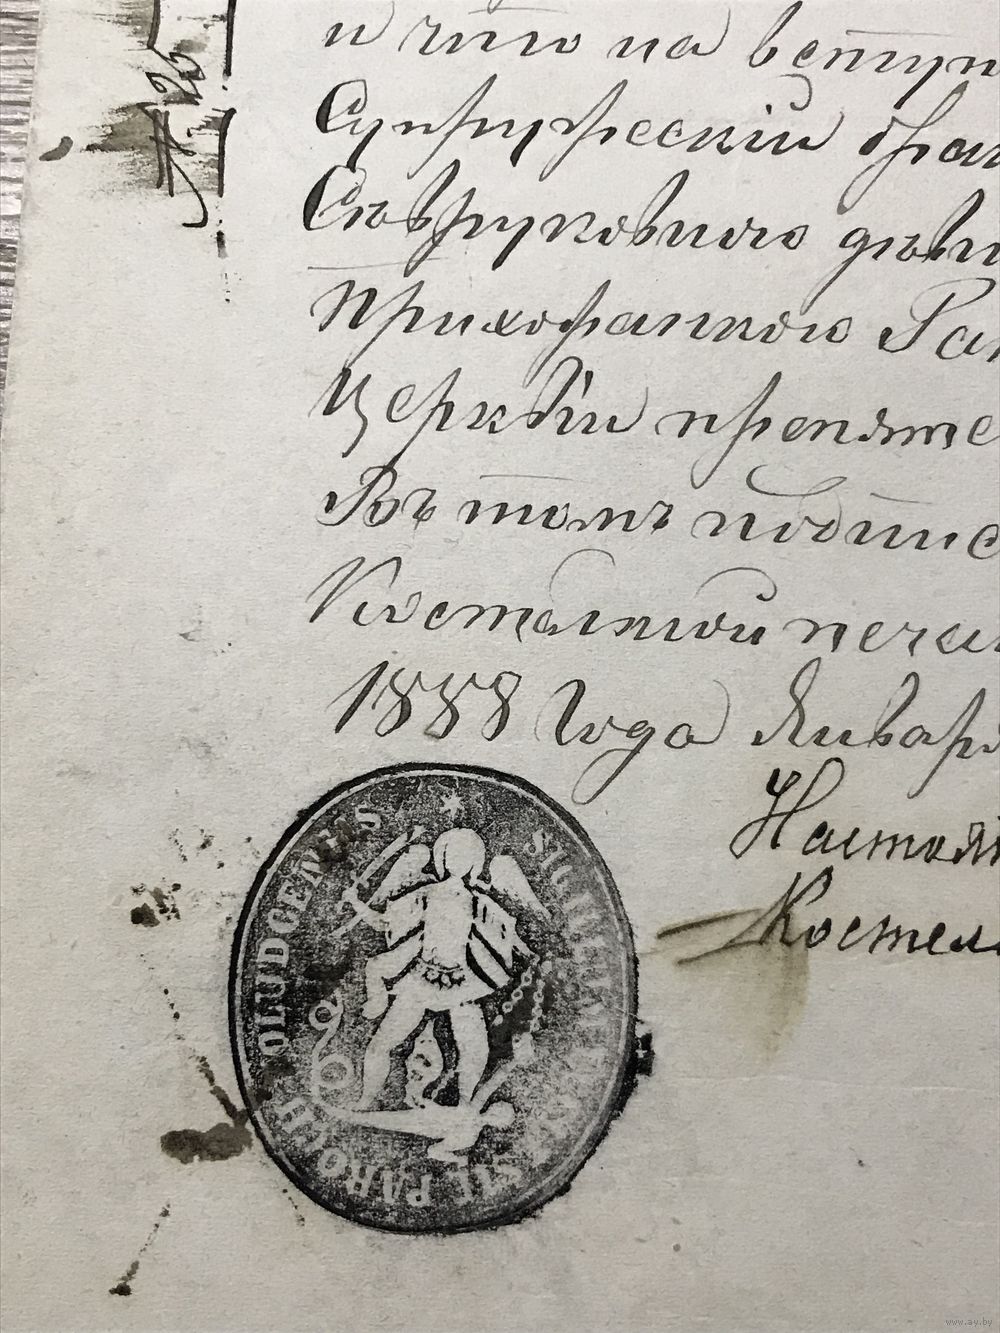 № 26
и что на вступ
Супружескій бра
Севруковною дѣви
прихожанкою Ра
Церкви препятс
Въ томъ подпис
Костельной печа
1888 года Январ
Настоя
Костел
SIGIL
SIL PAROCH
OLUDCENSIS
www.ay.by